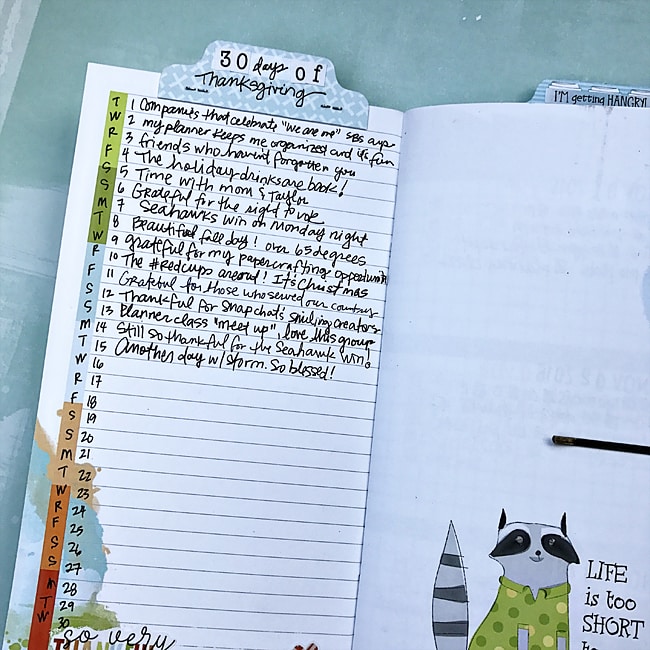 30 days of
Thanksgiving
I'M getting HANGRY!
T 1 Companies that celebrate "We are me" SBS
W 2 my planner keeps me organized and it's fun
R 3 friends who haven't forgotten you
F 4 The holiday drinks are back!
S 5 Time with mom & Taylor
S 6 Grateful for the right to vote
M 7 Seahawks win on Monday night
T 8 Beautiful fall day! over 65 degrees
W 9 grateful for my papercrafting opportunities
R 10 The #redcups are out! It's Christmas
F 11 Grateful for those who served our country
S 12 Thankful for Snapchat's smiling creators
S 13 Planner class "meet up", love this group
M 14 Still so thankful for the Seahawk win!
T 15 Another day w/ Storm. So blessed!
W 16
R 17
F 18
S 19
S 20
M 21
T 22
W 23
R 24
F 25
S 26
S 27
M 28
T 29
W 30
so very
LIFE
is too
SHORT